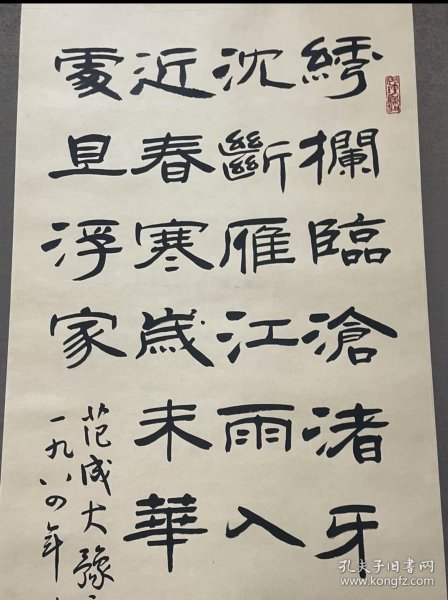 綉欄臨滄渚牙
沈斷雁江雨入
近春寒歲未華
處且浮家
范成大豫
一九八四年
孔夫子旧书网
www.kongfz.com